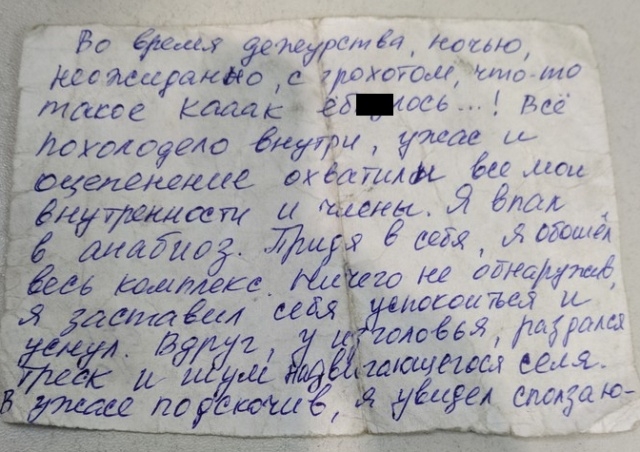 Во время дежурства, ночью,
неожиданно, с грохотом, что-то
такое кааак еб лось...! Всё
похолодело внутри, ужас и
оцепенение охватили все мои
внутренности и члены. Я впал
в анабиоз. Придя в себя, я обошёл
весь комплекс. Ничего не обнаружив,
я заставил себя успокоиться и
уснул. Вдруг, у изголовья, раздался
треск и шум надвигающегося селя.
В ужасе подскочив, я увидел сползаю-